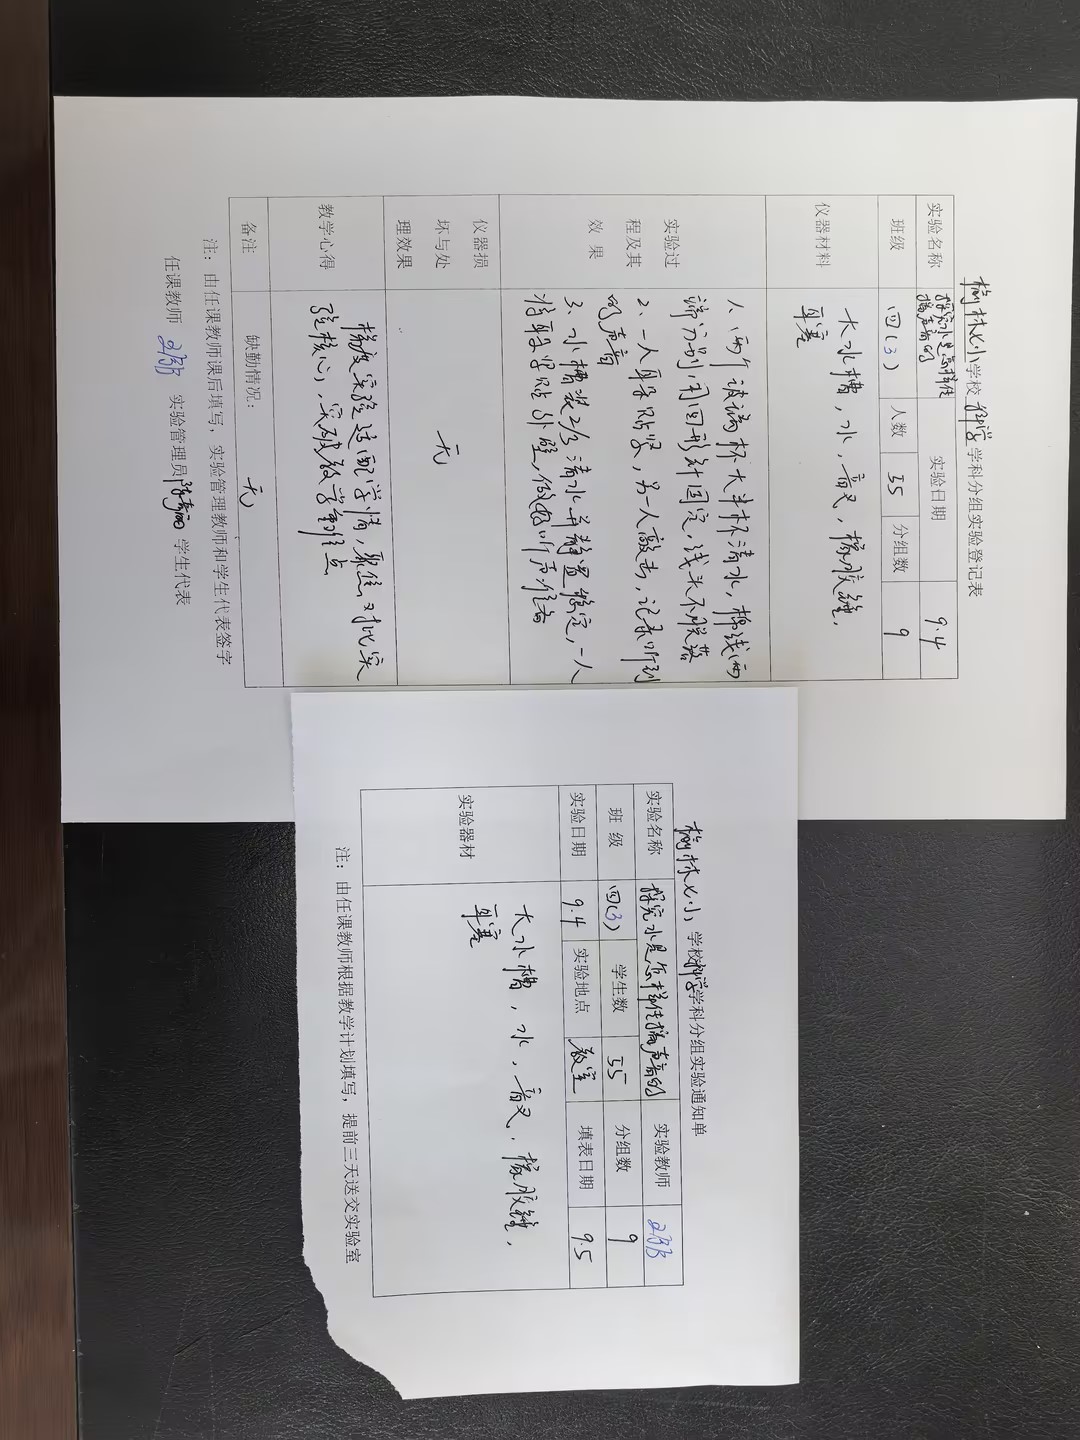 榆林七小学校科学学科分组实验登记表
实验名称 探究水是怎样传播声音的 实验日期 9.4
班级 四(3) 人数 35 分组数 9
仪器材料 大水槽，水，音叉，橡胶锤，
耳塞
实验过程及其效果
1、两个玻璃杯大半杯清水，棉线两
端分别用回形针固定，线头不脱落
2、一人耳朵贴紧，另一人敲击，记录听到
的声音
3、水槽装2/3清水并静置稳定，一人
将耳朵紧贴外壁，做好听声准备
仪器损坏与处理效果 无
教学心得 梯度实验适配学情，聚焦对比实
验核心，突破教学重难点
备注 缺勤情况： 无
注：由任课教师课后填写，实验管理教师和学生代表签字
任课教师 实验管理员 学生代表
榆林七小学校科学学科分组实验通知单
实验名称 探究水是怎样传播声音的 实验教师
班 级 四(3) 学生数 35 分组数 9
实验日期 9.4 实验地点 教室 填表日期 9.5
实验器材 大水槽，水，音叉，橡胶锤，
耳塞
注：由任课教师根据教学计划填写，提前三天送交实验室